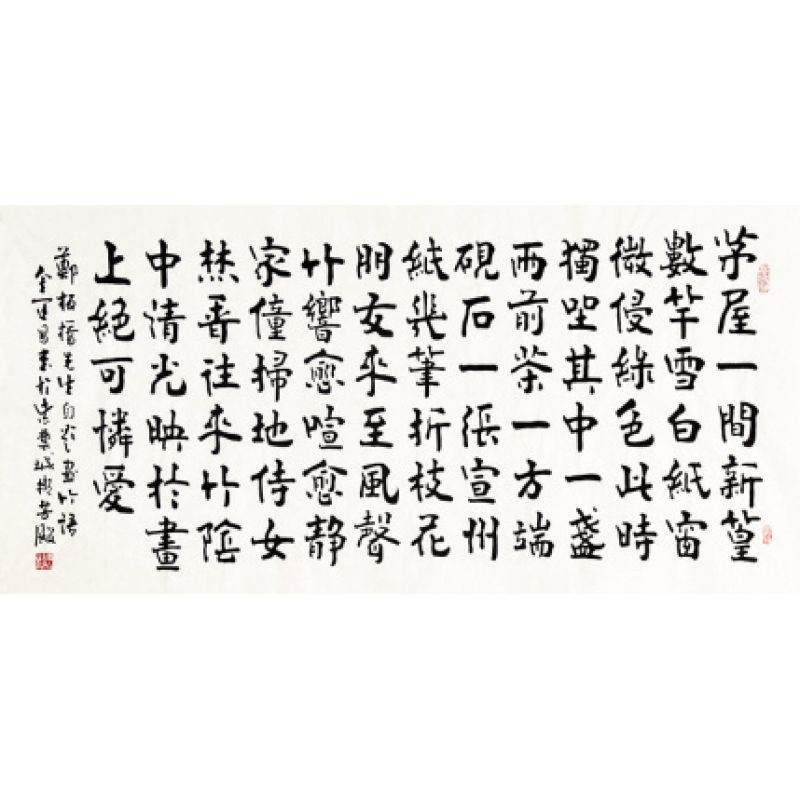 茅屋一間新篁
數竿雪白紙窗
微侵綠色此時
獨坐其中一盞
雨前茶一方端
硯石一張宣州
紙幾筆折枝花
朋友來至風聲
竹響愈喧愈靜
家僮掃地侍女
焚香往來竹陰
中清光映於畫
上絕可憐愛
鄭板橋先生自家畫竹語